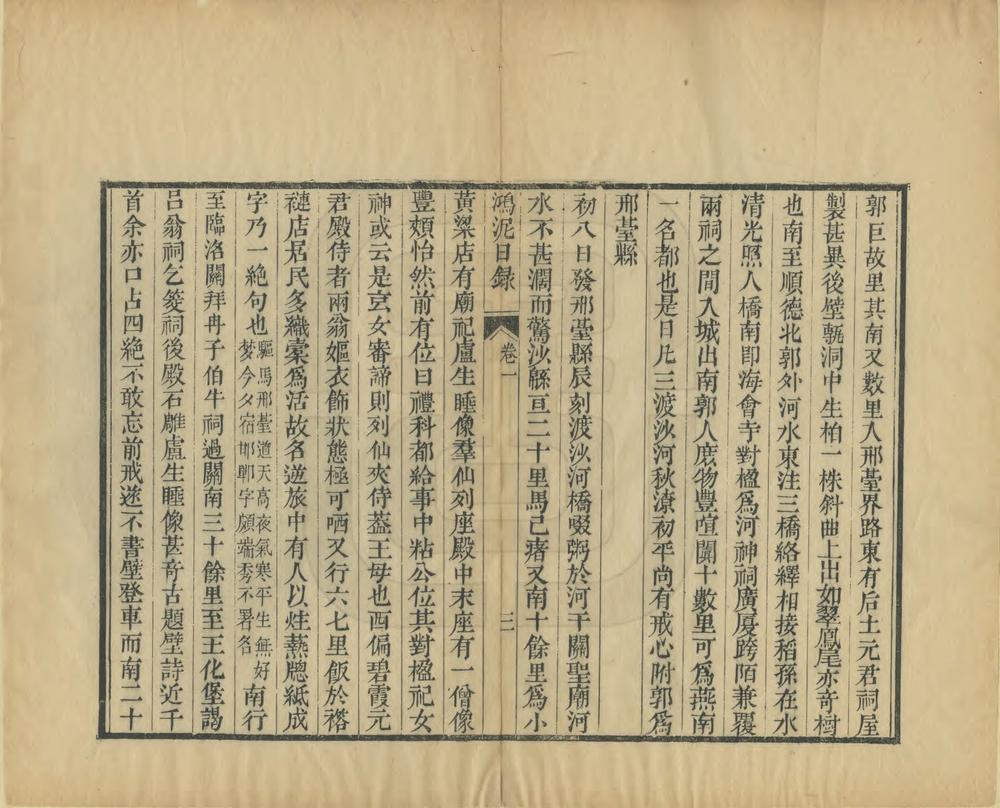 郭巨故里其南又數里入邢臺界路東有后土元君祠屋
製甚異後壁甎洞中生柏一株斜曲上出如翠鳳尾亦奇樹
也南至順德北郭外河水東注三橋絡繹相接稻孫在水
清光照人橋南即海會寺對楹爲河神祠廣廈跨陌兼覆
兩祠之間入城出南郭人庶物豐喧闐十數里可爲燕南
一名都也是日凡三渡沙河秋潦初平尚有戒心附郭爲
邢臺縣
初八日發邢臺縣辰刻渡沙河橋啜粥於河干關聖廟河
水不甚濶而驚沙緜亘二十里馬已瘏又南十餘里爲小
鴻泥日録 卷一 三
黃粱店有廟祀盧生睡像羣仙列座殿中末座有一僧像
豐頰怡然前有位曰禮科都給事中粘公位其對楹祀女
神或云是玄女審諦則列仙夾侍葢王母也西偏碧霞元
君殿侍者兩翁嫗衣飾狀態極可哂又行六七里飯於褡
褳店居民多織橐爲活故名逆旅中有人以炷爇牕紙成
字乃一絶句也驅馬邢臺道天高夜氣寒平生無好夢今夕宿邯鄲字頗端秀不署名南行
至臨洛關拜冉子伯牛祠過關南三十餘里至王化堡謁
呂翁祠乞筊祠後殿石雕盧生睡像甚奇古題壁詩近千
首余亦口占四絶不敢忘前戒遂不書壁登車而南二十